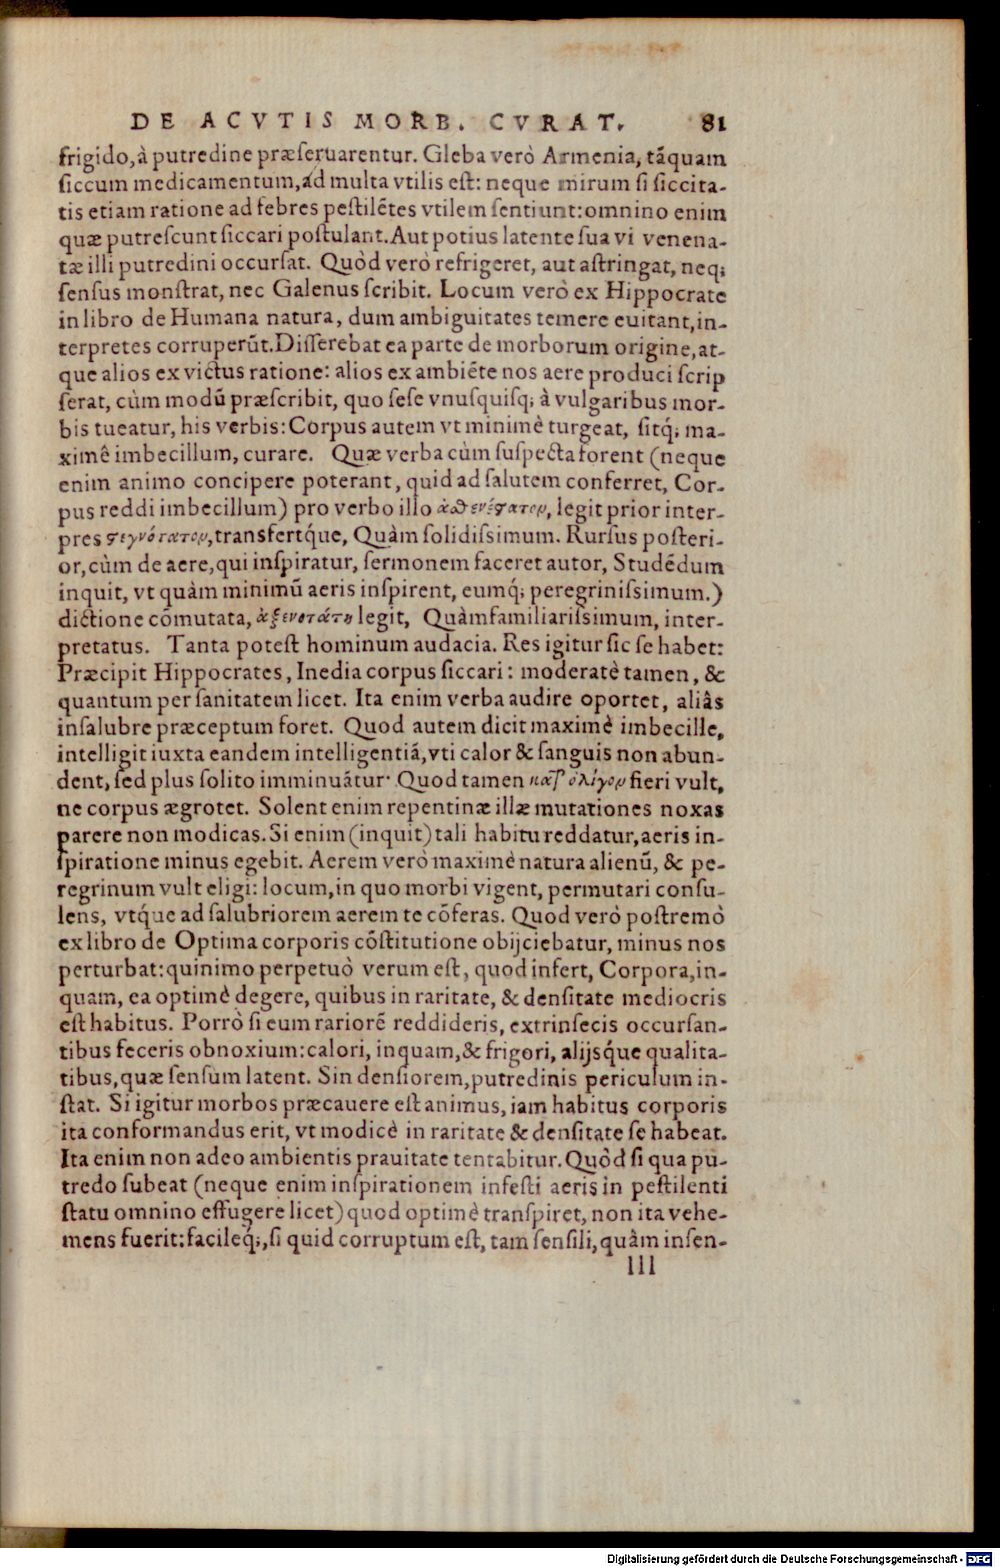 DE ACVTIS MORB. CVRAT. 81
frigido, à putredine præseruarentur. Gleba verò Armenia, tãquam
siccum medicamentum, ad multa vtilis est: neque mirum si siccita-
tis etiam ratione ad febres pestilẽtes vtilem sentiunt: omnino enim
quæ putrescunt siccari postulant. Aut potius latente sua vi venena-
tæ illi putredini occursat. Quòd verò refrigeret, aut astringat, neq;
sensus monstrat, nec Galenus scribit. Locum verò ex Hippocrate
in libro de Humana natura, dum ambiguitates temere euitant, in-
terpretes corruperũt. Disserebat ea parte de morborum origine, at-
que alios ex victus ratione: alios ex ambiẽte nos aere produci scrip
serat, cùm modũ præscribit, quo sese vnusquisq; à vulgaribus mor-
bis tueatur, his verbis: Corpus autem vt minimè turgeat, sitq́; ma-
ximê imbecillum, curare. Quæ verba cùm suspecta forent (neque
enim animo concipere poterant, quid ad salutem conferret, Cor-
pus reddi imbecillum) pro verbo illo ἀσθενέςατον, legit prior inter-
pres ςεγνότατον, transfertq́ue, Quàm solidissimum. Rursus posteri-
or, cùm de aere, qui inspiratur, sermonem faceret autor, Studẽdum
inquit, vt quàm minimũ aeris inspirent, eumq́; peregrinissimum.)
dictione cõmutata, ἀξενοτάτου legit, Quàm familiarissimum, inter-
pretatus. Tanta potest hominum audacia. Res igitur sic se habet:
Præcipit Hippocrates, Inedia corpus siccari: moderatè tamen, &
quantum per sanitatem licet. Ita enim verba audire oportet, aliâs
insalubre præceptum foret. Quod autem dicit maximè imbecille,
intelligit iuxta eandem intelligentiã, vti calor & sanguis non abun-
dent, sed plus solito imminuãtur. Quod tamen κατ' ὀλίγον fieri vult,
ne corpus ægrotet. Solent enim repentinæ illæ mutationes noxas
parere non modicas. Si enim (inquit) tali habitu reddatur, aeris in-
spiratione minus egebit. Aerem verò maximè natura alienũ, & pe-
regrinum vult eligi: locum, in quo morbi vigent, permutari consu-
lens, vtq́ue ad salubriorem aerem te cõferas. Quod verò postremò
ex libro de Optima corporis cõstitutione obijciebatur, minus nos
perturbat: quinimo perpetuò verum est, quod infert, Corpora, in-
quam, ea optimè degere, quibus in raritate, & densitate mediocris
est habitus. Porrò si eum rariorẽ reddideris, extrinsecis occursan-
tibus feceris obnoxium: calori, inquam, & frigori, alijsq́ue qualita-
tibus, quæ sensum latent. Sin densiorem, putredinis periculum in-
stat. Si igitur morbos præcauere est animus, iam habitus corporis
ita conformandus erit, vt modicè in raritate & densitate se habeat.
Ita enim non adeo ambientis prauitate tentabitur. Quòd si qua pu-
tredo subeat (neque enim inspirationem infesti aeris in pestilenti
statu omnino effugere licet) quod optimè transpiret, non ita vehe-
mens fuerit: facileq́;, si quid corruptum est, tam sensili, quàm insen-
lll
Digitalisierung gefördert durch die Deutsche Forschungsgemeinschaft - DFG